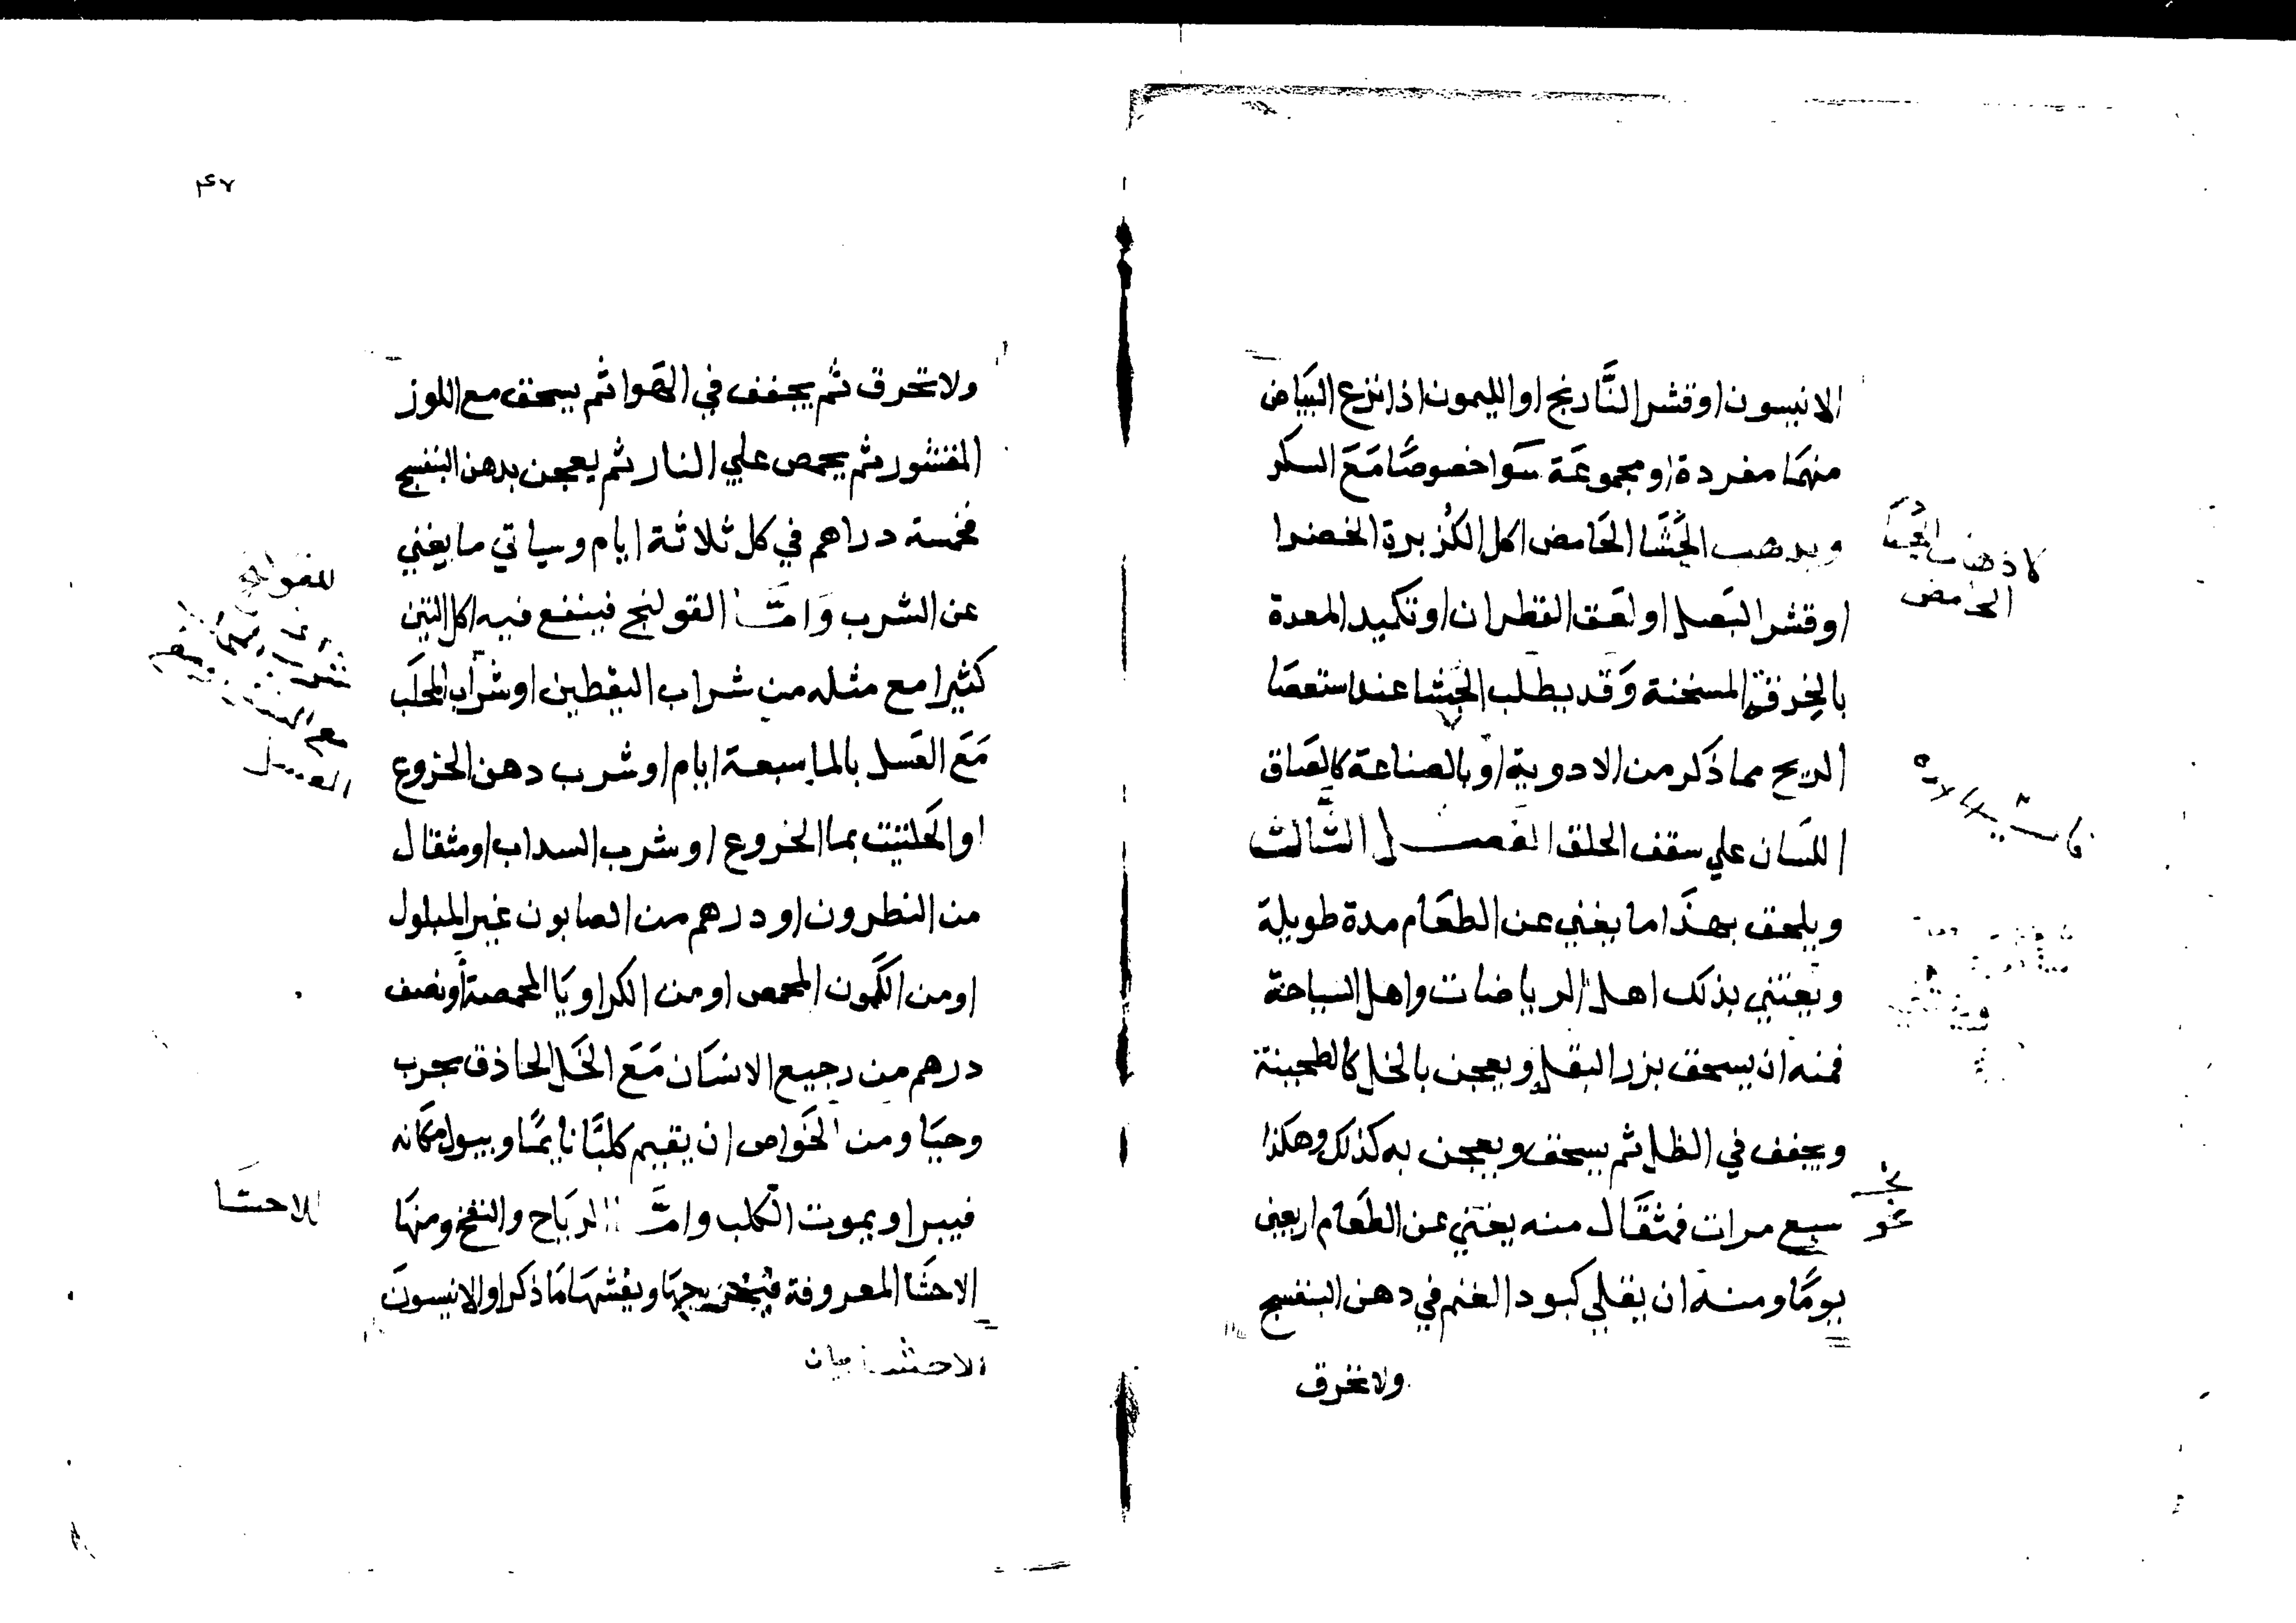 الانيسون او قشر النَّارنج او الليمون اذا نزع البَياض
منهمَا مفردة او مجموعَة سَوا خصوصًا مَعَ السكر
ويذهب الجَشَا الحَامض اكل الكزبرة الخضرا
او قشر البَصل او لعَق القطران او تكميد المعدة
بالخِرقة المسخنة وَقد يطلب الجشا عند استعصَا
الريح مما ذَكر من الادوية او بالصناعة كالصَاق
اللسَان علي سقف الحلق الفصل الثَّالث
ويلحق بهذَا ما يغني عن الطعَام مدة طويلة
ويَعتني بذلك اهل الرياضات واهل السياحة
فمنه ان يسحق بزر البقلة ويعجن بالخل كالطحينة
ويجفف في الظل ثم يسحق ويعجن به كذلك وهكذا
سبع مرات فمثقَال منه يغني عن الطعَام اربعين
يومًا ومنه ان يغلي كبود الغنم في دهن البنفسج
ولا تحرق
لاذهَاب الجشَا
الحَامض
٤٧
ولا تحرق ثم يجفف في الهَوا ثم يسحق مع اللوز
المقشور ثم يحمص علي النار ثم يعجن بدهن البنفسج
فخمسة دراهم في كل ثلاثة ايام وسياتي ما يغني
عن الشرب وَامَّا القولنج فينفع فيه اكل التين
كثيرا مع مثله من شراب اليقطين او شراب المحلَب
مَعَ العَسل بالما سبعة ايام او شرب دهن الخروع
او الحَلتيت بما الخروع او شرب السداب او مثقال
من النطرون او درهم من الصابون غير المبلول
او من الكَمون المحمص او من الكراويَا المحمصة او نصف
درهم من رجيع الانسَان مَعَ الخَل الحاذق مجرب
وحيَا ومن الخَواص ان يقيم كلبًا نايمًا ويبول مكَانه
فيبرا ويموت الكلب وامَّا الريَاح والنفخ ومنهَا
الاحشَا المعروفة ويفشهَا مَا ذكر او الانيسونَ
للقولنج
العسل
للاحشَا